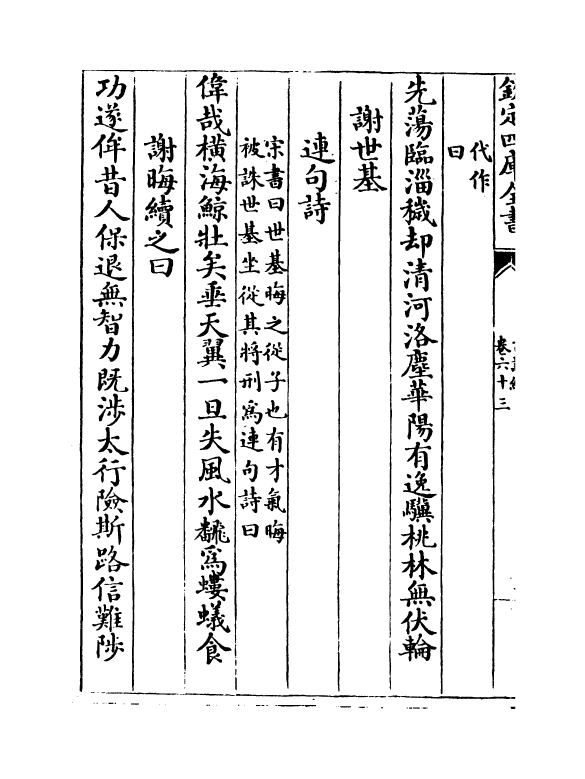 欽定四庫全書
卷六十三
代作
曰
先蕩臨淄穢却清河洛塵華陽有逸驥桃林無伏輪
謝世基
連句詩
宋書曰世基晦之從子也有才氣晦
被誅世基坐從其將刑為連句詩曰
偉哉橫海鯨壯矣垂天翼一旦失風水翻為螻蟻食
謝晦續之曰
功遂侔昔人保退無智力既涉太行險斯路信難陟